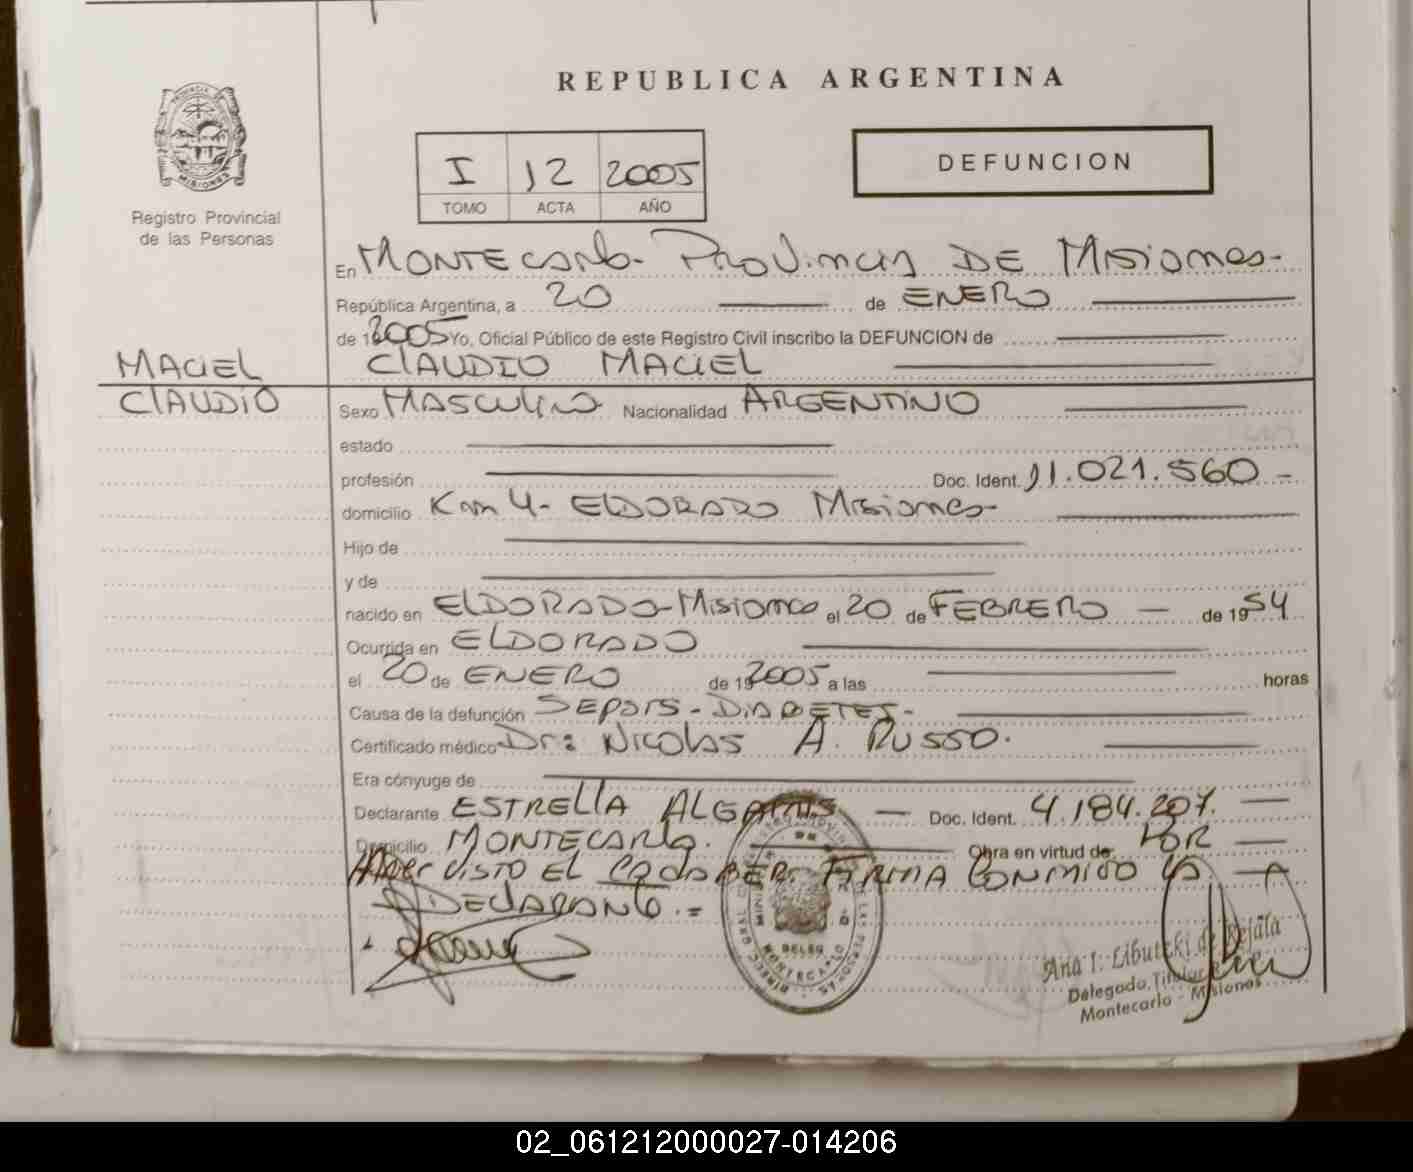 REPUBLICA ARGENTINA
PROVINCIA DE
MISIONES
Registro Provincial
de las Personas
I 12 2005
TOMO ACTA AÑO
DEFUNCION
En MONTECARLO - PROVINCIA DE MISIONES-
República Argentina, a 20 de ENERO
de 2005 Yo, Oficial Público de este Registro Civil inscribo la DEFUNCION de
MACIEL CLAUDIO MACIEL
CLAUDIO Sexo MASCULINO Nacionalidad ARGENTINO
estado
profesión Doc. Ident. 11.021.560-
domicilio Km 4- ELDORADO MISIONES-
Hijo de
y de
nacido en ELDORADO-MISIONES el 20 de FEBRERO - de 1954
Ocurrida en ELDORADO
el 20 de ENERO de 2005 a las horas
Causa de la defunción SEPSIS-DIABETES-
Certificado médico Dr: NICOLAS A. RUSSO.
Era cónyuge de
Declarante ESTRELLA Doc. Ident. 4.184.207.
Domicilio MONTECARLO. Obra en virtud de POR
HABER VISTO EL CADAVER. FIRMA CONMIGO LA
DECLARANTE.=
MONTECARLO
Ana I. Libutzki de Rejala
Delegada Titular
Montecarlo - Misiones
02_061212000027-014206